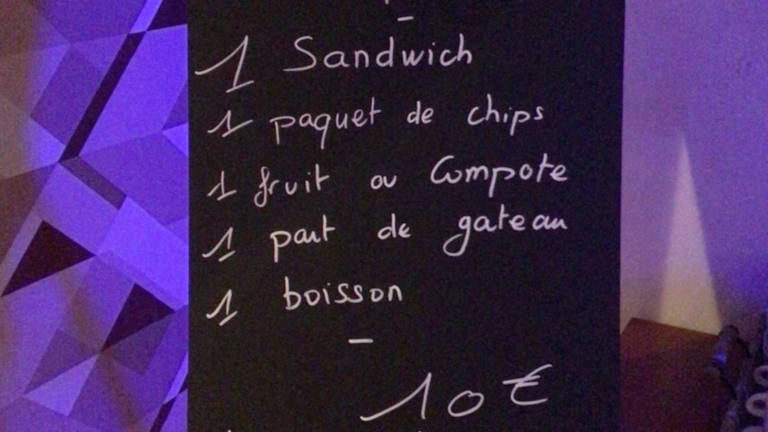 -
1 Sandwich
1 paquet de chips
1 fruit ou Compote
1 part de gateau
1 boisson
-
10 €